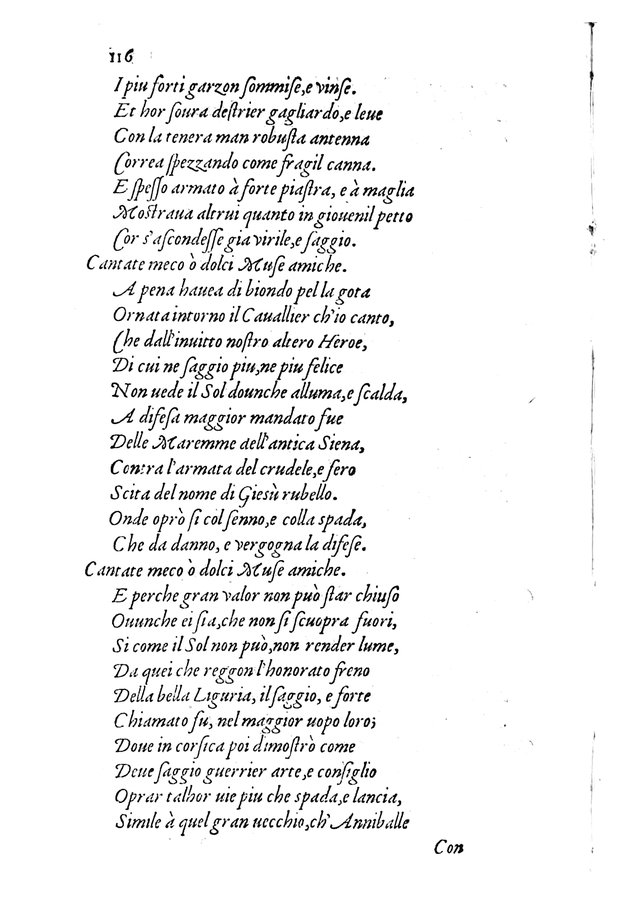 116
I piu forti garzon sommiſe,e vinſe.
Et hor ſoura deſtrier gagliardo,e leue
Con la tenera man robuſta antenna
Correa ſpezzando come fragil canna.
E ſpeſſo armato à forte piaſtra, e à maglia
Moſtraua altrui quanto in giouenil petto
Cor s'aſcondeſſe gia virile,e ſaggio.
Cantate meco ò dolci Muſe amiche.
A pena hauea di biondo pel la gota
Ornata intorno il Cauallier ch'io canto,
Che dall'inuitto noſtro altero Heroe,
Di cui ne ſaggio piu,ne piu felice
Non uede il Sol dounche alluma,e ſcalda,
A difeſa maggior mandato fue
Delle Maremme dell'antica Siena,
Contra l'armata del crudele,e fero
Scita del nome di Gieſù rubello.
Onde oprò ſi col ſenno,e colla spada,
Che da danno, e vergogna la difeſe.
Cantate meco ò dolci Muſe amiche.
E perche gran valor non può ſtar chiuſo
Ouunche ei ſia,che non ſi ſcuopra fuori,
Si come il Sol non può,non render lume,
Da quei che reggon l'honorato freno
Della bella Liguria, il ſaggio, e forte
Chiamato fu, nel maggior uopo loro;
Doue in corſica poi dimoſtrò come
Deue ſaggio guerrier arte,e conſiglio
Oprar talhor uie piu che spada,e lancia,
Simile à quel gran uecchio,ch'Anniballe
Con